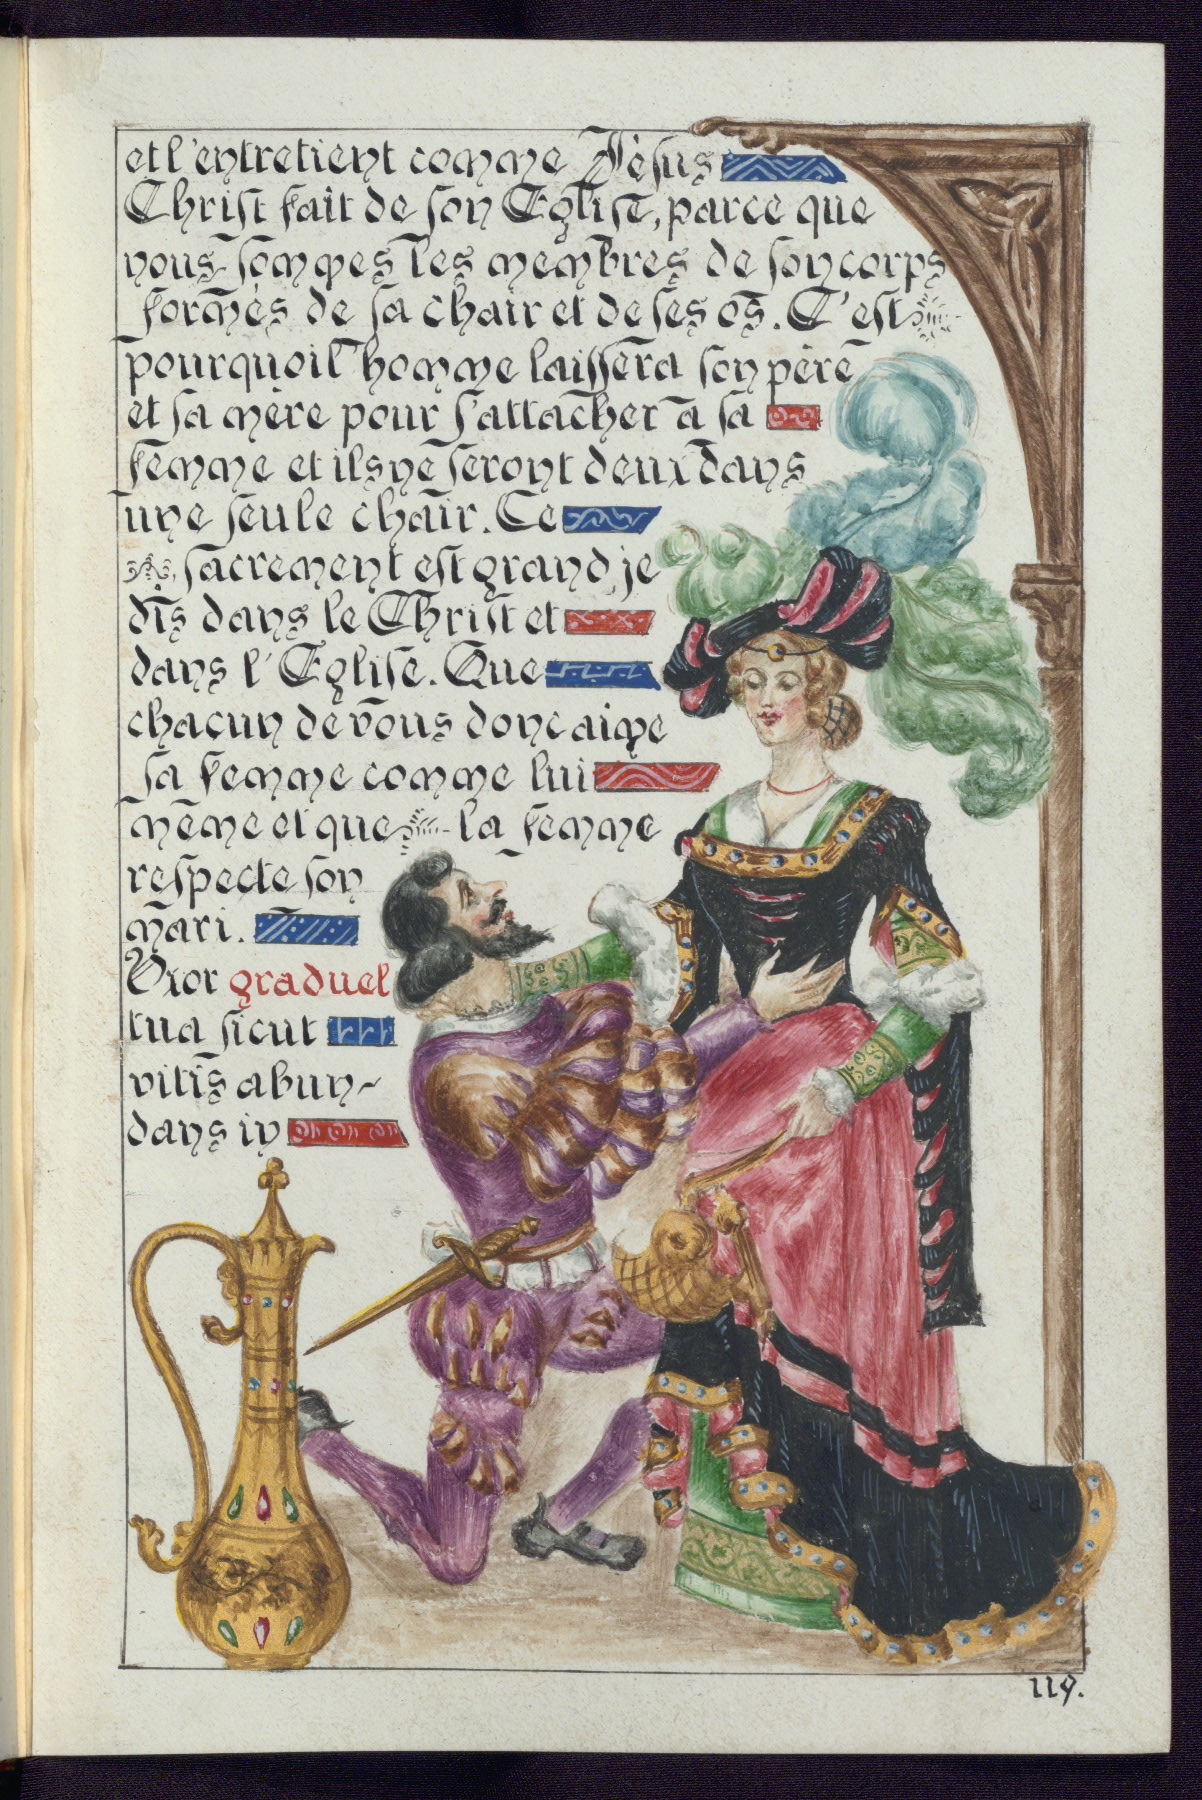 et l'entretient comme Jésus
Christ fait de son Eglise, parce que
nous sommes les membres de son corps
formés de sa chair et de ses os. C'est
pourquoi l'homme laissera son père
et sa mère pour s'attacher à sa
femme et ils ne seront deux dans
une seule chair. Ce
sacrement est grand, je
dis dans le Christ et
dans l'Eglise. Que
chacun de vous donc aime
sa femme comme lui
même et que la femme
respecte son
mari.
Uxor graduel
tua sicut
vitis abun-
dans in
119.